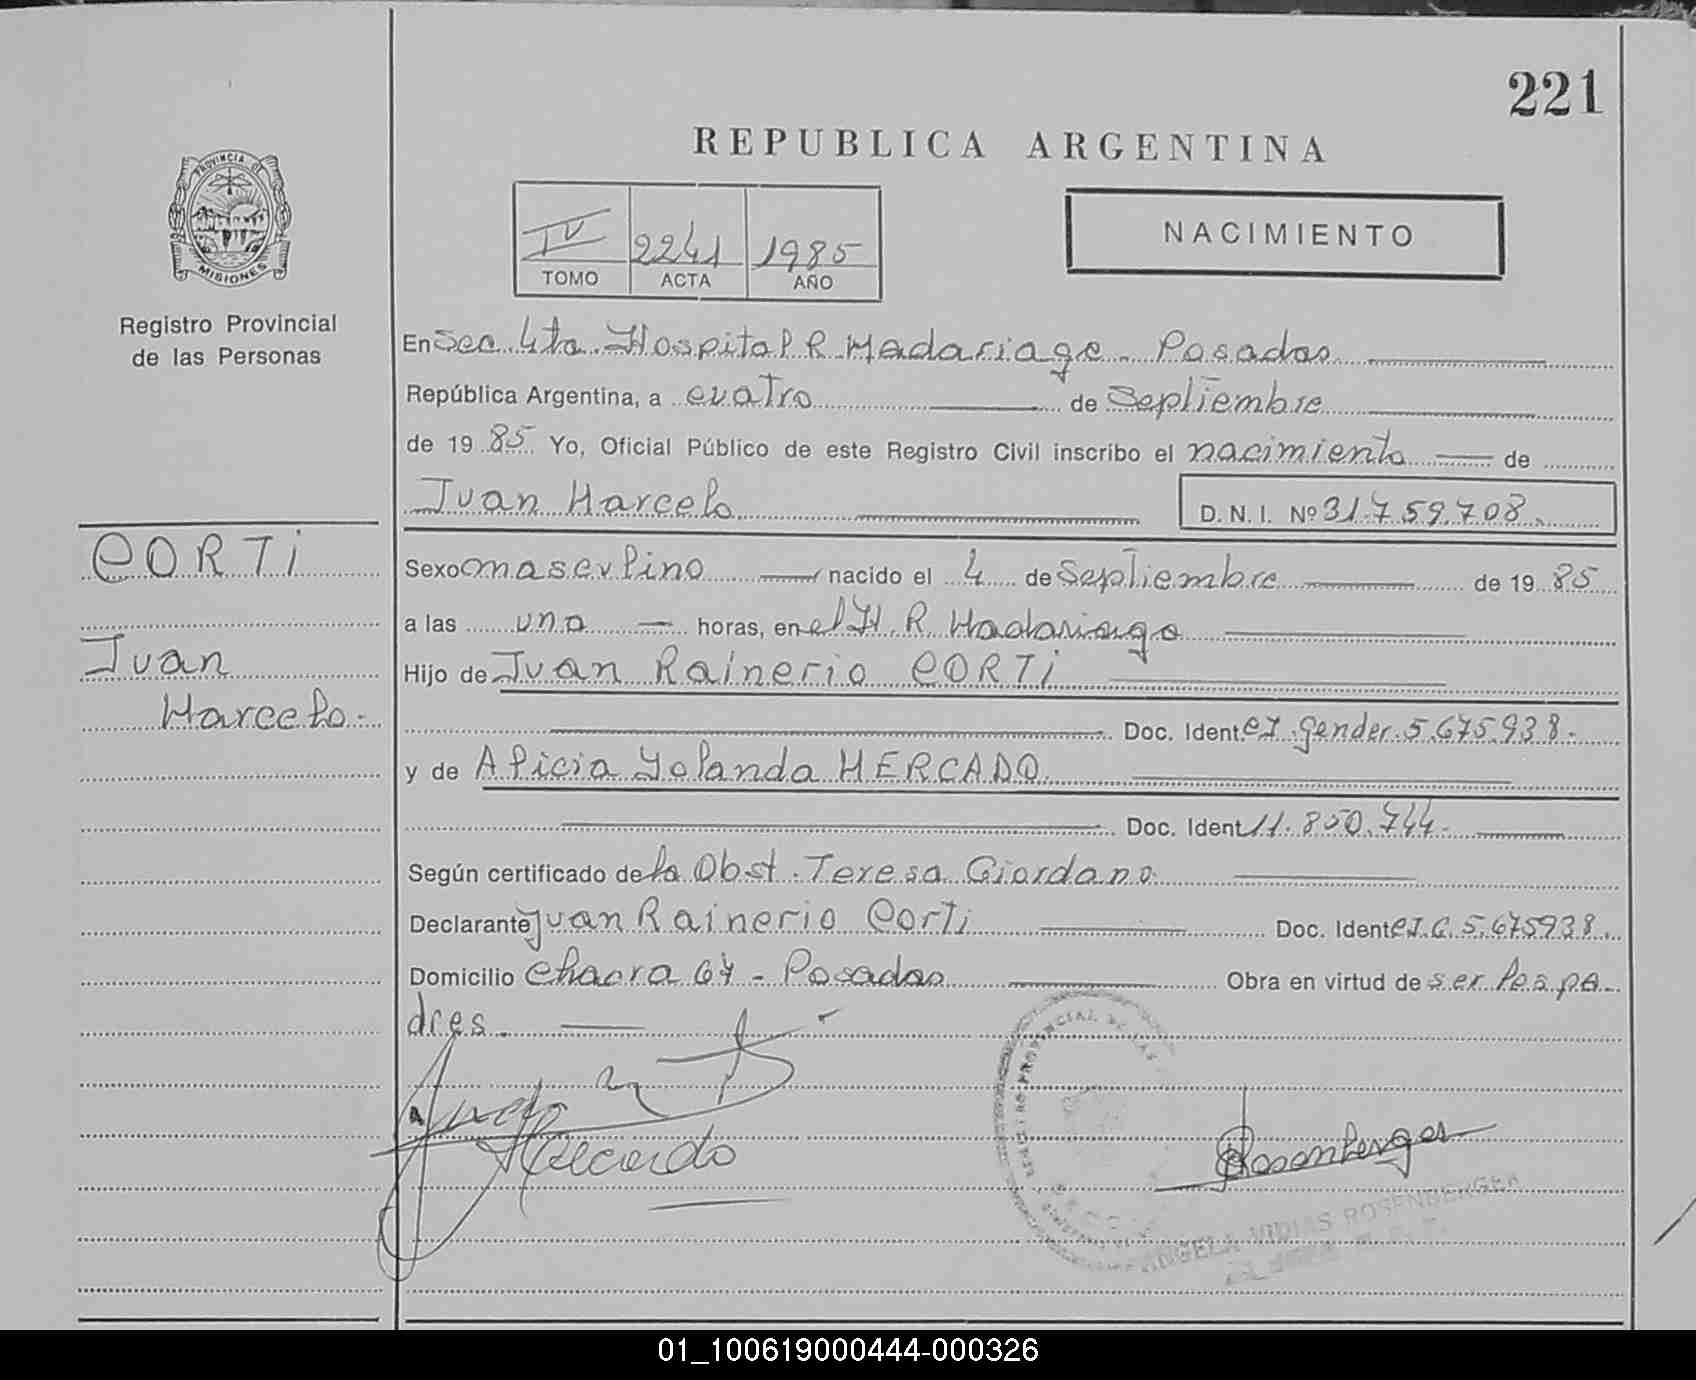 221
REPUBLICA ARGENTINA
PROVINCIA DE
MISIONES
Registro Provincial
de las Personas
IV 2241 1985
TOMO ACTA AÑO
NACIMIENTO
En Sec. 4ta. Hospital R Madariaga - Posadas
República Argentina, a cuatro de Septiembre
de 19 85 Yo, Oficial Público de este Registro Civil inscribo el nacimiento de
Juan Marcelo D.N.I. Nº 31.759.708.
CORTi
Juan
Marcelo.-
Sexo masculino nacido el 4 de Septiembre de 19 85
a las una horas, en el H. R. Madariaga
Hijo de Juan Rainerio CORTi
Doc. Ident. CI. gender. 5.675.938.
y de Alicia Yolanda MERCADO
Doc. Ident 11.850.744.
Según certificado de la Obst. Teresa Giordano
Declarante Juan Rainerio Corti Doc. Ident CI.G. 5.675938.
Domicilio Chacra 67 - Posadas Obra en virtud de ser los pa-
dres.
Mercado
Rosenberger
ANGELA VIDIAS ROSENBERGER
01_100619000444-000326